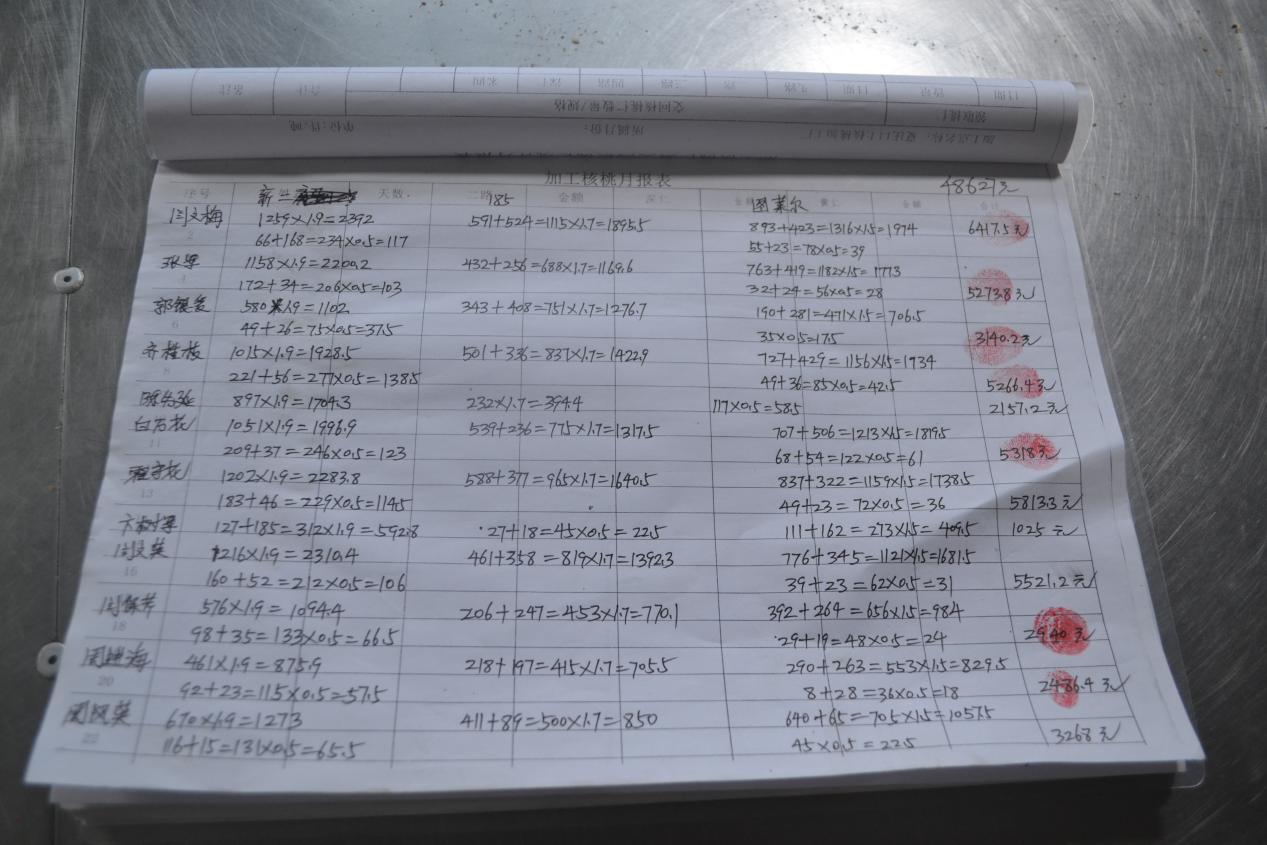 加工核桃月报表
48627元
序号 新丝 天数 二路185 金额 图莱尔 黄仁 金额 合计
闫文梅 1259×1.9=2392 591+524=1115×1.7=1895.5 893+423=1316×1.5=1974 6417.5元
2 66+168=234×0.5=117 55+23=78×0.5=39
1158×1.9=2200.2 432+256=688×1.7=1169.6 763+419=1182×1.5=1773
172+34=206×0.5=103 32+24=56×0.5=28 5273.8元
580×1.9=1102 343+408=751×1.7=1276.7 190+281=471×1.5=706.5
6 49+26=75×0.5=37.5 35×0.5=17.5 3140.2元
齐桂枝 1015×1.9=1928.5 501+336=837×1.7=1422.9 727+429=1156×1.5=1734
8 221+56=277×0.5=138.5 49+36=85×0.5=42.5 5266.4元
897×1.9=1704.3 232×1.7=394.4 117×0.5=58.5 2157.2元
1051×1.9=1996.9 539+236=775×1.7=1317.5 707+506=1213×1.5=1819.5
11 209+37=246×0.5=123 68+54=122×0.5=61 5318元
1202×1.9=2283.8 588+377=965×1.7=1640.5 837+322=1159×1.5=1738.5
13 183+46=229×0.5=114.5 49+23=72×0.5=36 5813.3元
127+185=312×1.9=592.8 27+18=45×0.5=22.5 111+162=273×1.5=409.5 1025元
1216×1.9=2310.4 461+358=819×1.7=1392.3 776+345=1121×1.5=1681.5
16 160+52=212×0.5=106 39+23=62×0.5=31 5521.2元
576×1.9=1094.4 206+247=453×1.7=770.1 392+264=656×1.5=984
18 98+35=133×0.5=66.5 29+19=48×0.5=24 2940元
461×1.9=875.9 218+197=415×1.7=705.5 290+263=553×1.5=829.5
20 92+23=115×0.5=57.5 8+28=36×0.5=18 2486.4元
670×1.9=1273 411+89=500×1.7=850 640+65=705×1.5=1057.5
22 116+15=131×0.5=65.5 45×0.5=22.5 3268元